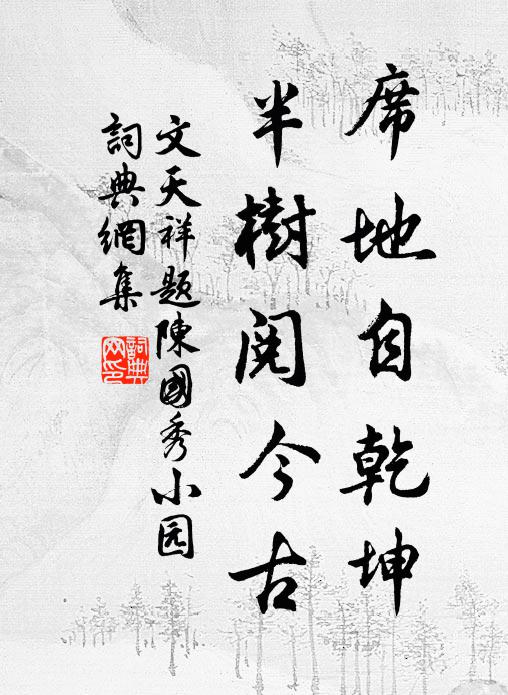 席地自乾坤
半樹閱今古
文天祥题陳國秀小园
詞典網集
詞典网印